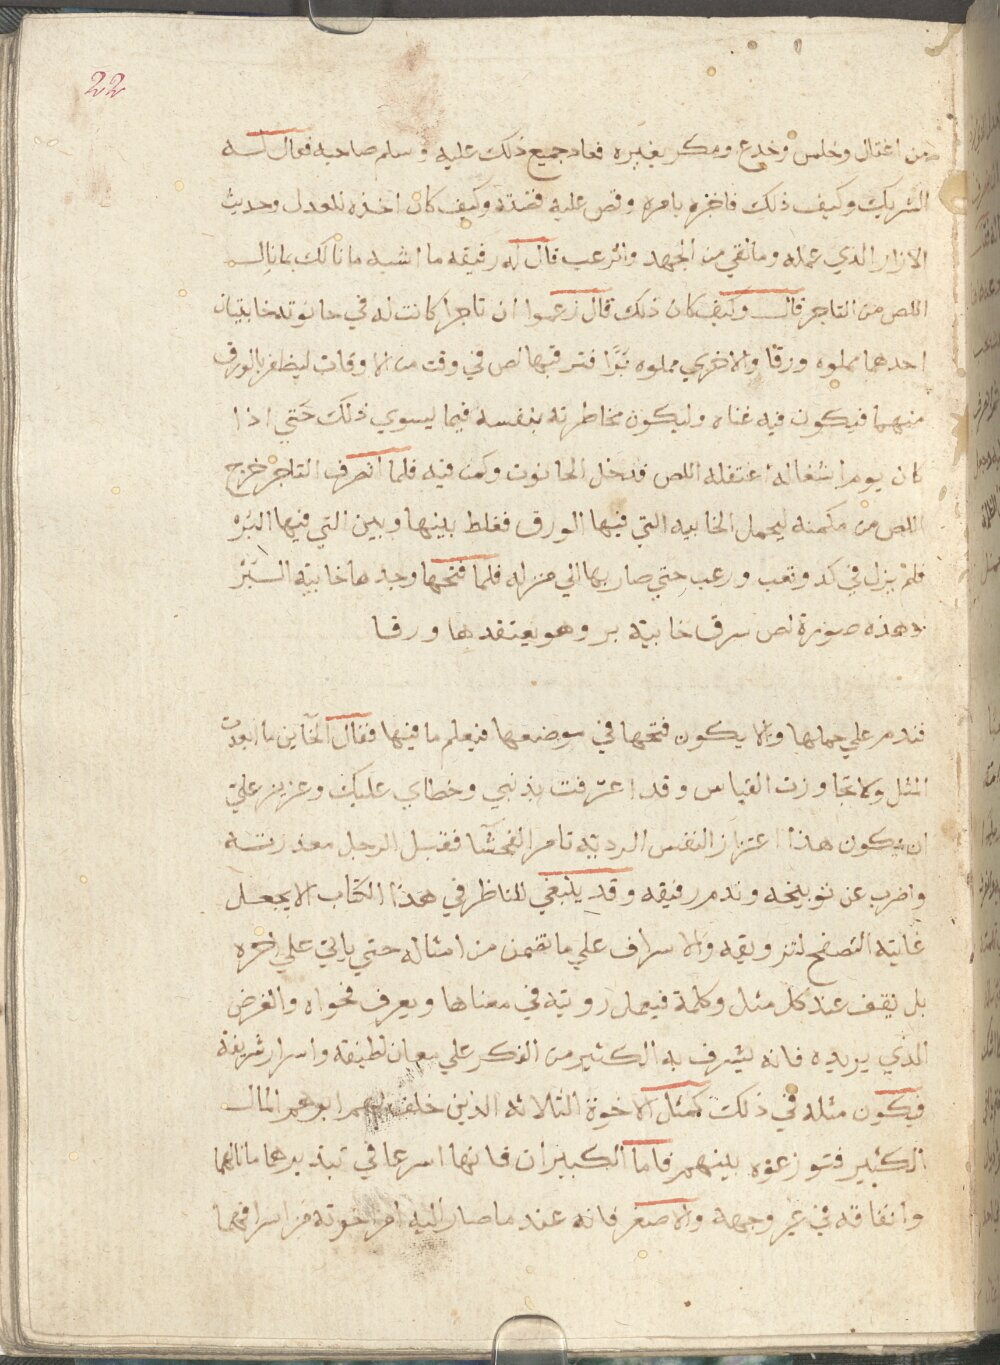 22
من اغتال وخلس وخدع ومكر بغيره فعاد جميع ذلك عليه وسلم صاحبه فقال له
الشريك وكيف ذلك فاخبره بامره وقص عليه قصته وكيف كان اخذه للعدل وحديث
الازار الذي عمله وما لقي من الجهد والرعب قال له رفيقه ما اشبه ما نالك بما نال
اللص من التاجر قال وكيف كان ذلك قال زعموا ان تاجرا كانت له في حانوته خابيتان
احدهما مملوه ورقا والاخري مملوه بُرًّا فترقبها لص في وقت من الاوقات ليظفر بالورق
منهما فيكون فيه غناه وليكون مخاطرته بنفسه فيما يسوي ذلك حتي اذا
كان يوم اشغاله اغتفله اللص فدخل الحانوت وكمن فيه فلما انصرف التاجر خرج
اللص من مكمنه ليحمل الخابيه التي فيها الورق فغلط بينها وبين التي فيها البُر
فلم يزل في كد وتعب ورعب حتي صار بها الي منزله فلما فتحها وجدها خابية البُر
وهذه صورة لص سرق خابية بر وهو يعتقدها ورقا
فندم علي حملها والا يكون فتحها في موضعها فيعلم ما فيها فقال الخاين ما ابعدت
المثل ولا تجاوزت القياس وقد اعترفت بذنبي وخطاي عليك وعزيز علي
ان يكون هذا اعتزاز النفس الردية تامر الفحشا فقبل الرجل معذرته
واضرب عن توبيخه وندم رفيقه وقد ينبغي للناظر في هذا الكتاب الا يجعل
غايته التصفح لتزويقه والاسراف علي ما تضمن من امثاله حتي ياتي علي اخره
بل يقف عند كل مثل وكلمة فيعمل رويته في معناها ويعرف فحواه والغرض
الذي يريده فانه يشرف به الكثير من الفكر علي معان لطيفة واسرار شريفة
فيكون مثله في ذلك كمثل الاخوة الثلاثه الذين خلف لهم ابوهم المال
الكثير فتوزعوه بينهم فاما الكبيران فانهما اسرعا في تبذيرهما مالهما
وانفاقه في غير وجهه والاصغر فانه عند ما صار اليه امر اخوته من اسرافهما